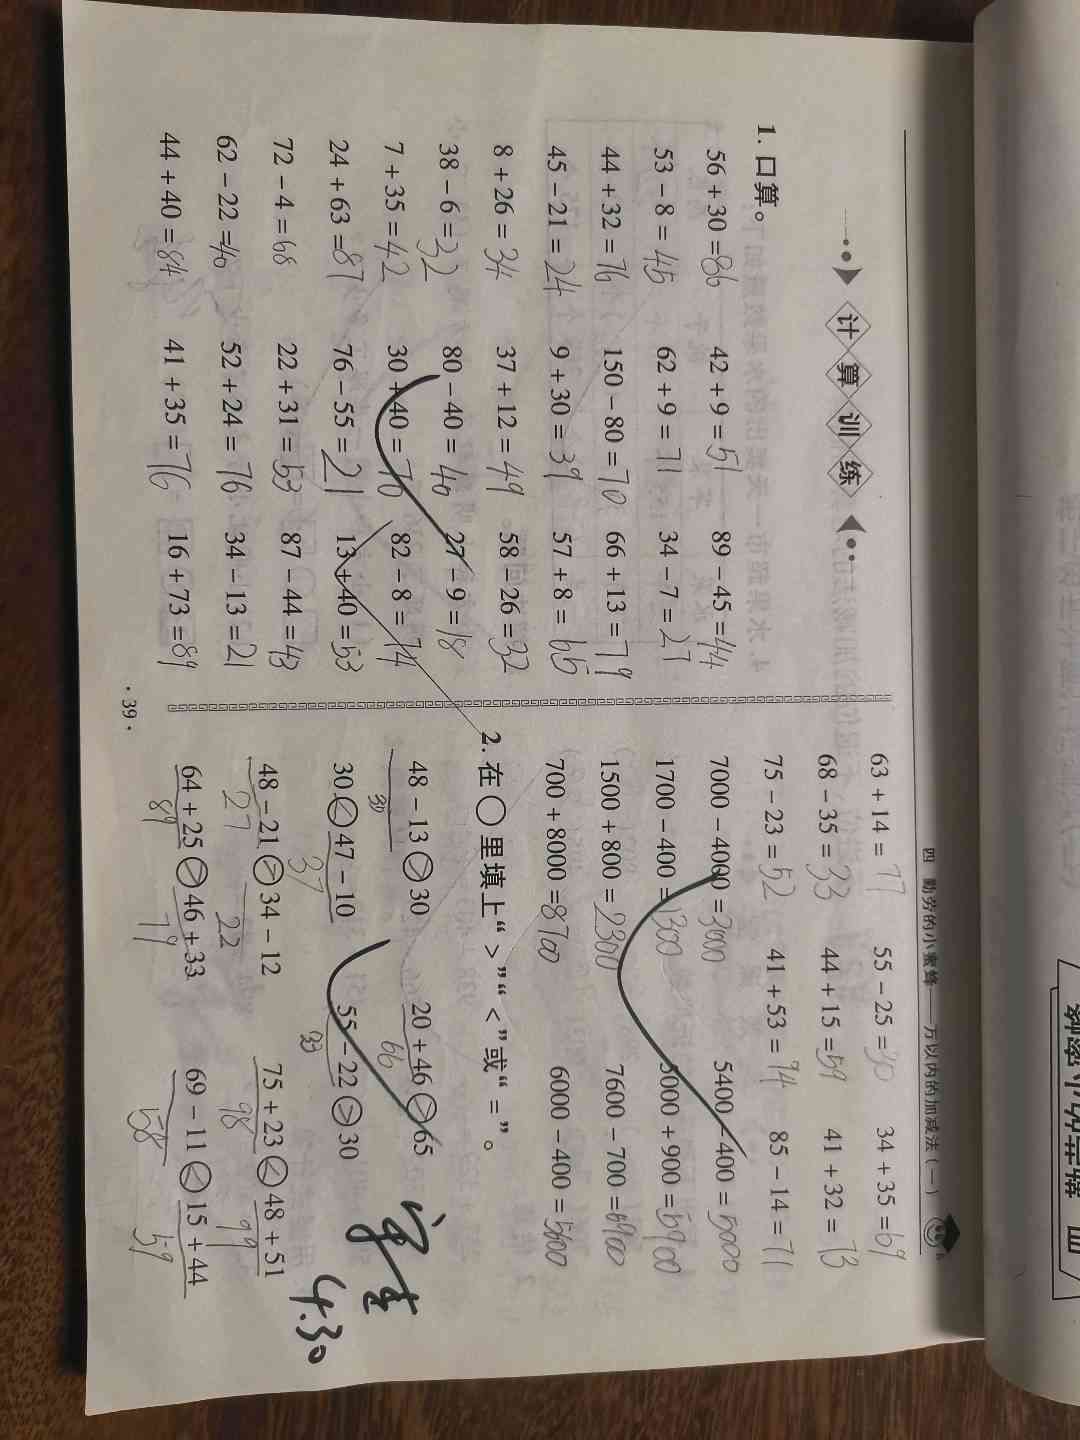 四 勤劳的小蜜蜂——万以内的加减法(一)
计算训练
1. 口算。
56 + 30 = 86 42 + 9 = 51 89 - 45 = 44
53 - 8 = 45 62 + 9 = 71 34 - 7 = 27
44 + 32 = 76 150 - 80 = 70 66 + 13 = 79
45 - 21 = 24 9 + 30 = 39 57 + 8 = 65
8 + 26 = 34 37 + 12 = 49 58 - 26 = 32
38 - 6 = 32 80 - 40 = 40 27 - 9 = 18
7 + 35 = 42 30 + 40 = 70 82 - 8 = 74
24 + 63 = 87 76 - 55 = 21 13 + 40 = 53
72 - 4 = 68 22 + 31 = 53 87 - 44 = 43
62 - 22 = 40 52 + 24 = 76 34 - 13 = 21
44 + 40 = 84 41 + 35 = 76 16 + 73 = 89
63 + 14 = 77 55 - 25 = 30 34 + 35 = 69
68 - 35 = 33 44 + 15 = 59 41 + 32 = 73
75 - 23 = 52 41 + 53 = 94 85 - 14 = 71
7000 - 4000 = 3000 5400 - 400 = 5000
1700 - 400 = 1300 5000 + 900 = 5900
1500 + 800 = 2300 7600 - 700 = 6900
700 + 8000 = 8700 6000 - 400 = 5600
2. 在○里填上“>”“<”或“=”。
48 - 13 > 30 20 + 46 > 65
66
30 < 47 - 10 55 - 22 > 30
37 33
48 - 21 > 34 - 12 75 + 23 < 48 + 51
27 22 98 99
64 + 25 > 46 + 33 69 - 11 < 15 + 44
89 79 58 59
4.30
· 39 ·